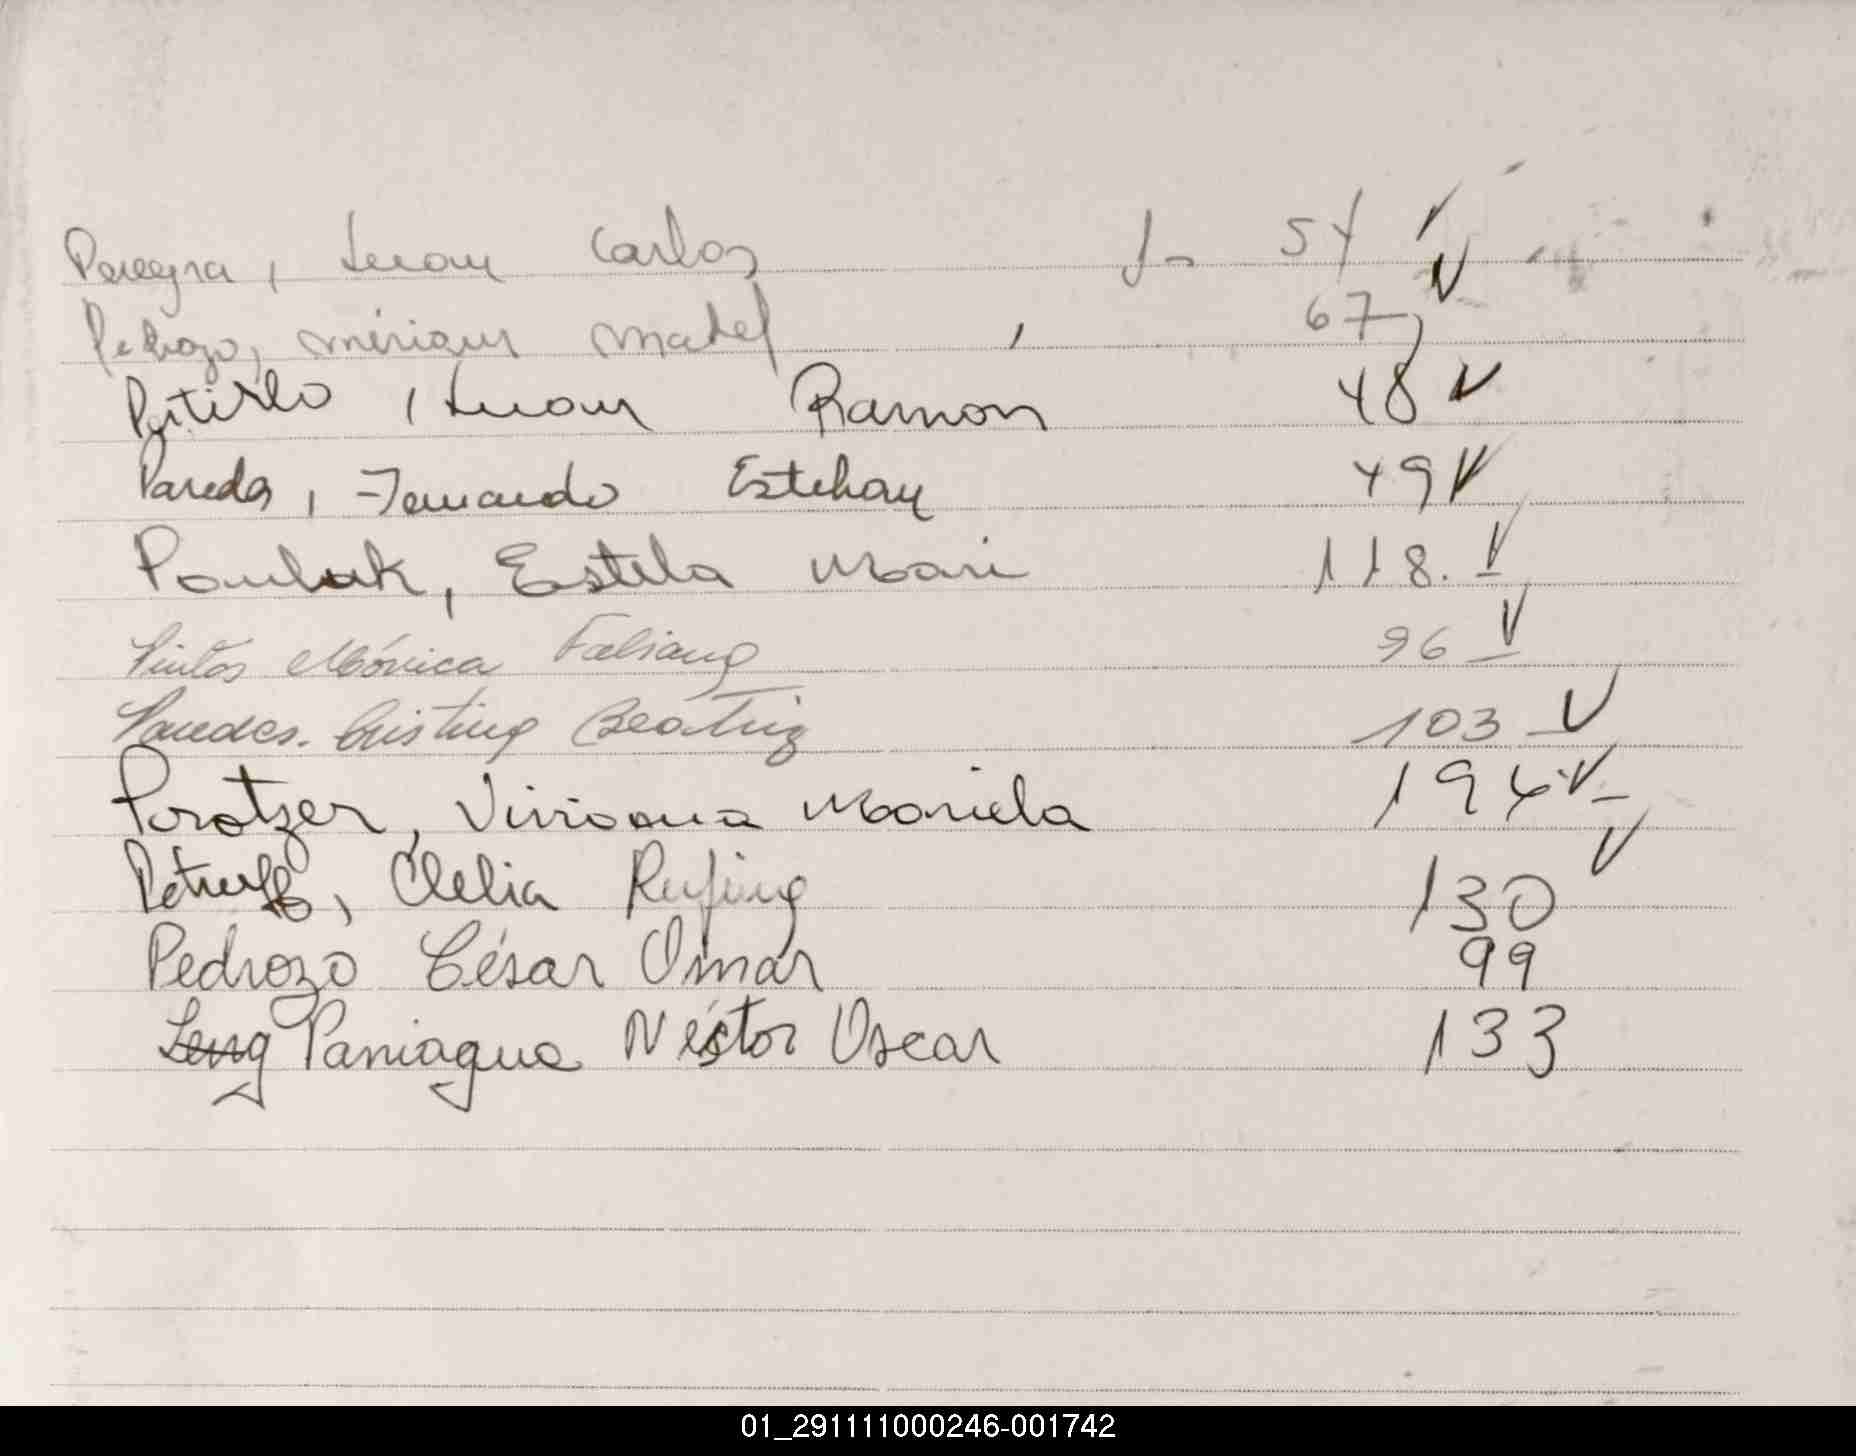 Pereyra, Juan Carlos J- 54 V
Pedrozo, Miriam Mabel 67
Petirlo, Juan Ramón 48 V
Pareda, Fernando Esteban 49 V
Pawluk, Estela Mari 118. V
Pintos Mónica Fabiana 96 V
Paredes. Cristina Beatriz 103 V
Protzer, Viviana Mariela 194 V
Clelia Rufina 130 V
Pedrozo César Omar 99
Paniagua Néstor Oscar 133
01_291111000246-001742